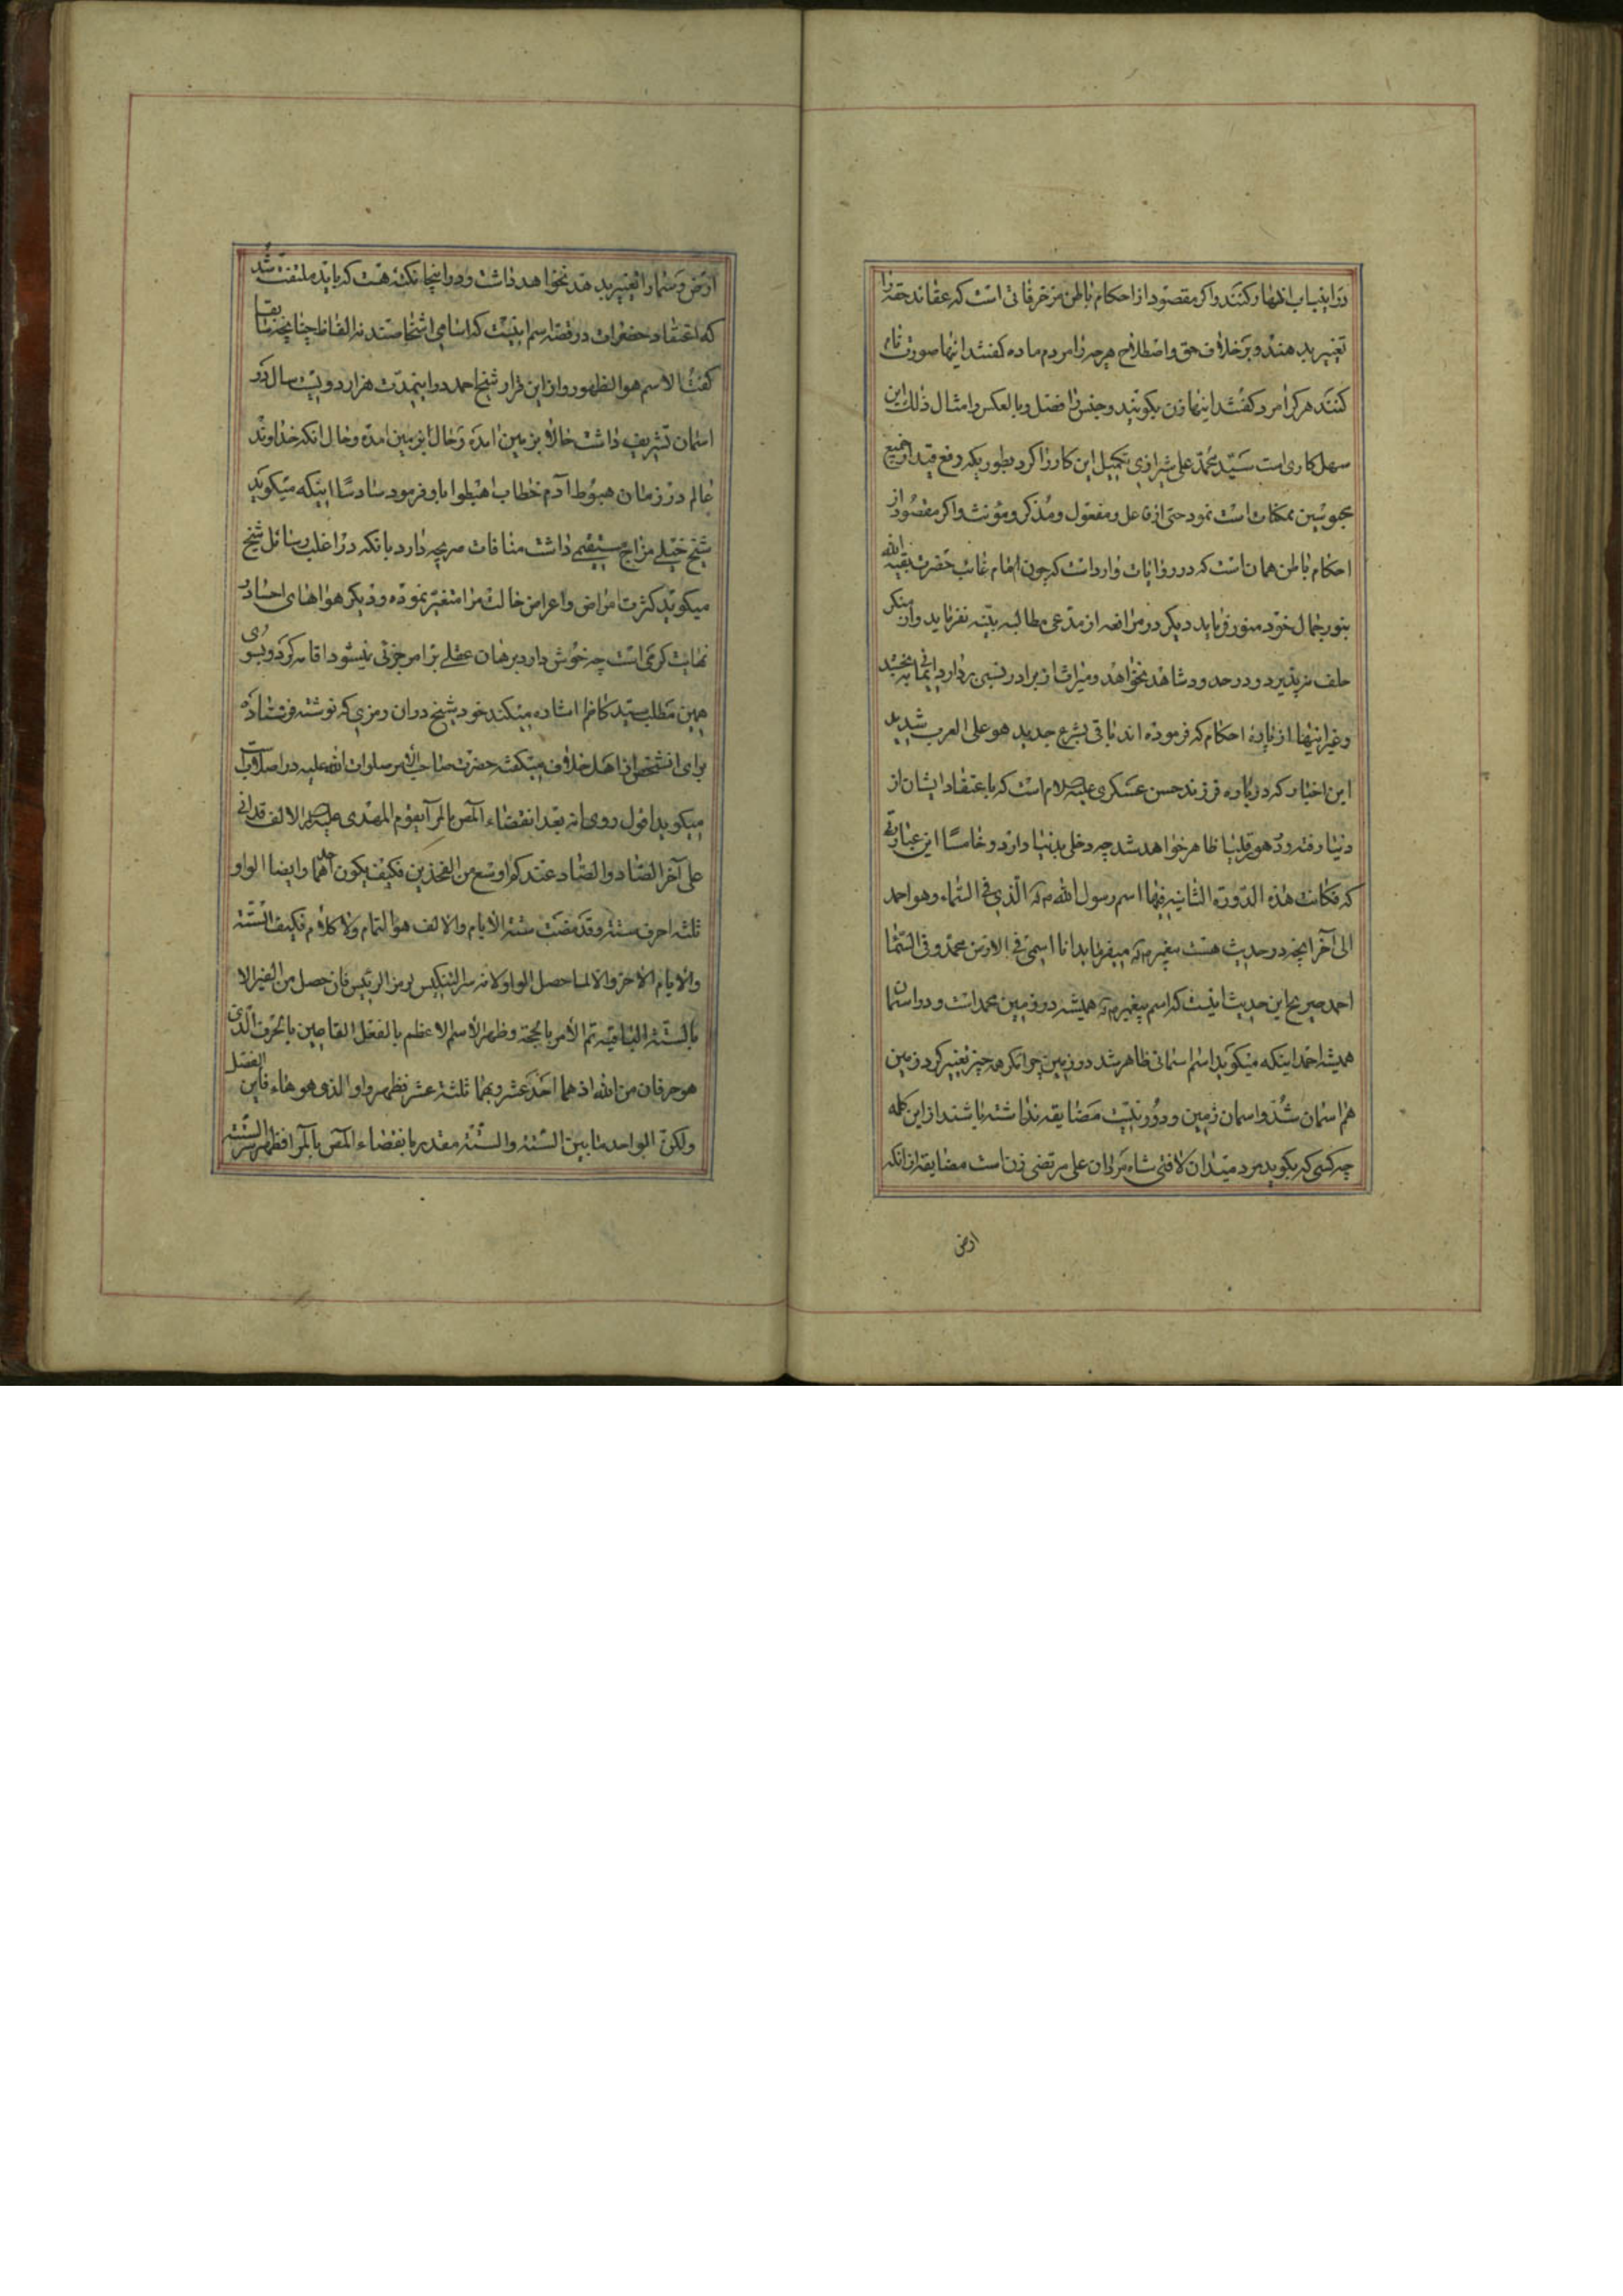 در اینباب اظهار کنند و اکر مقصود از احکام باطن مزخرفاتی است که عقاند حقه را
تغییر بدهند و بر خلاف حق و اصطلاح هر چه را مردم ماده کفتند اینها صورت نام
کنند هر کرا مرد کفتند اینها زن بکویند و جنس را فصل و بالعکس و امثال ذلك این
سهل کاری است سید محمد علی شیرازی تکمیل این کار را کرد بطوریکه رفع قید از جمیع
محبوسین ممکنات است نمود حتی از فاعل و مفعول و مذکر و مؤنث و اکر مقصود از
احکام باطن همان است که در روایات وارد است که چون امام غائب حضرت بقیة الله
بنور جمال خود منور فرماید دیکر در مرافعه از مدعی مطالبه بینه نفرماید و از منکر
حلف نپذیرد و در حدود شاهد نخواهد و میراث از برادر نسبی بردارد ایمانی بخشد
و غیر اینها از پارهٔ احکام که فرموده اند یاتی بشرع جدید هو علی العرب شدید
این اخبار که در باره فرزند حسن عسکری علیه السلام است که باعتقاد ایشان از
دنیا رفته و در هورقلیا ظاهر خواهد شد چه دخلی بدنیا دارد و خامسا این عبارتی
که فکانت هذه الدورة الثانیه فیها اسم رسول الله ص الذی فی السماء و هو احمد
الی آخر انچه در حدیث هست پیغمبر ص میفرماید انا اسمی فی الارض محمد و فی السما
احمد صریح این حدیث اینست که اسم پیغمبر ص همیشه در زمین محمد است و در اسمان
همیشه احمد اینکه میکوید اسم اسمانی ظاهر شد در زمین چرا مکر همه چیز تغییر کرد زمین
هم اسمان شد و اسمان زمین و دور نیست مضایقه نداشته باشند از این کله
چه کسی که بکوید مرد میدان لافتی شاه مردان علی مرتضی زن است مضایقه از انکه
ارض
ارض و سما را تغییر بدهد نخواهد داشت و در اینجا نکته هست که باید ملتفت شد
که اعتقاد حضرات در قصه اسم اینست که اسامی اشخاصند نه الفاظ چنانچه سابقا
کفت الاسم هو الظهور و از این قرار شیخ احمد در این مدت هزار و دویست سال در
اسمان تشریف داشت حالا بزمین امده و حال بزمین امده و حال انکه خداوند
عالم در زمان هبوط آدم خطاب اهبطوا باو فرمود سادسا اینکه میکوید
شیخ خیلی مزاج مستقیمی داشت منافات صریحه دارد بانکه در اغلب رسائل شیخ
میکوید کثرت امراض و اعراض حالت مرا متغیر نموده و دیکر هواهای احساد
نهایت کرمی است چه خوش دارد برهان عقلی بر امر جزئی نیسودا قامه کرد و بسوی
همین مطلب سید کاظم اشاره میکند خود شیخ در ان رمزی که نوشته فرستاده
برای انشخص از اهل خلاف میکفت حضرت صاحب الامر صلوات الله علیه در اصلاب
میکوید اقول روی انه بعد انقضاء المص بالمر آیقوم المهدی علیه السلام الالف قد اتی
علی آخر الصاد و الصاد عندکم اوسع من الفخذین فکیف یکون احدهما و ایضا الواو
ثلثه احرف سته و قد مضت سته الایام و الالف هو التمام ولا کلام فکیف الستة
والایام الاخر و الا لما حصل الواو لانه سر التنکیس لرمز الرئیس فان حصل من الغیر الا
بالستة الباقیه تم الامر بالحجة و ظهر الاسم الاعظم بالفعل القاصین بالحرف الذی
هو حرفان من الله اذ هما احد عشر و بهما ثلثة عشر فظهر واو الذی هو هاء فاین الفصل
ولکن الواحد ما بین الستة والستة مقدر بانقضاء المص بالمرا فظهر سر الستة